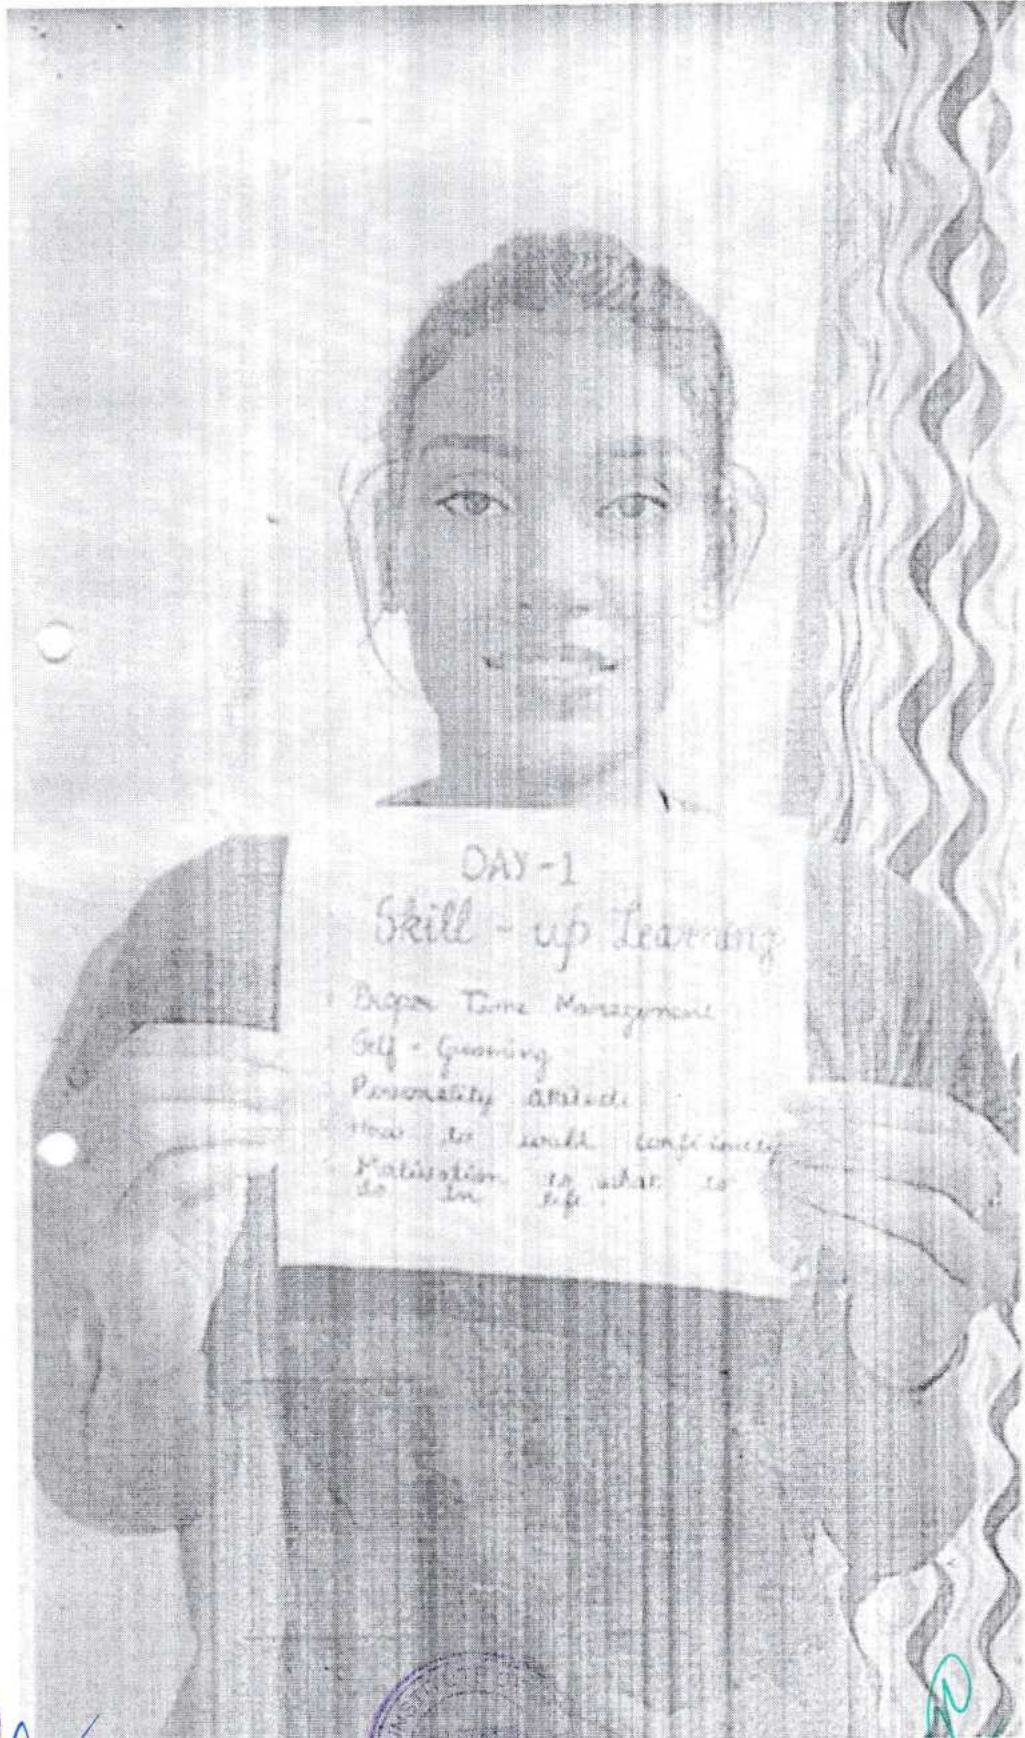 DAY-1
Skill - up Learning
Proper Time Management
Self - Grooming
Personality attitude
How to walk confidently
Motivation to what to
do in life